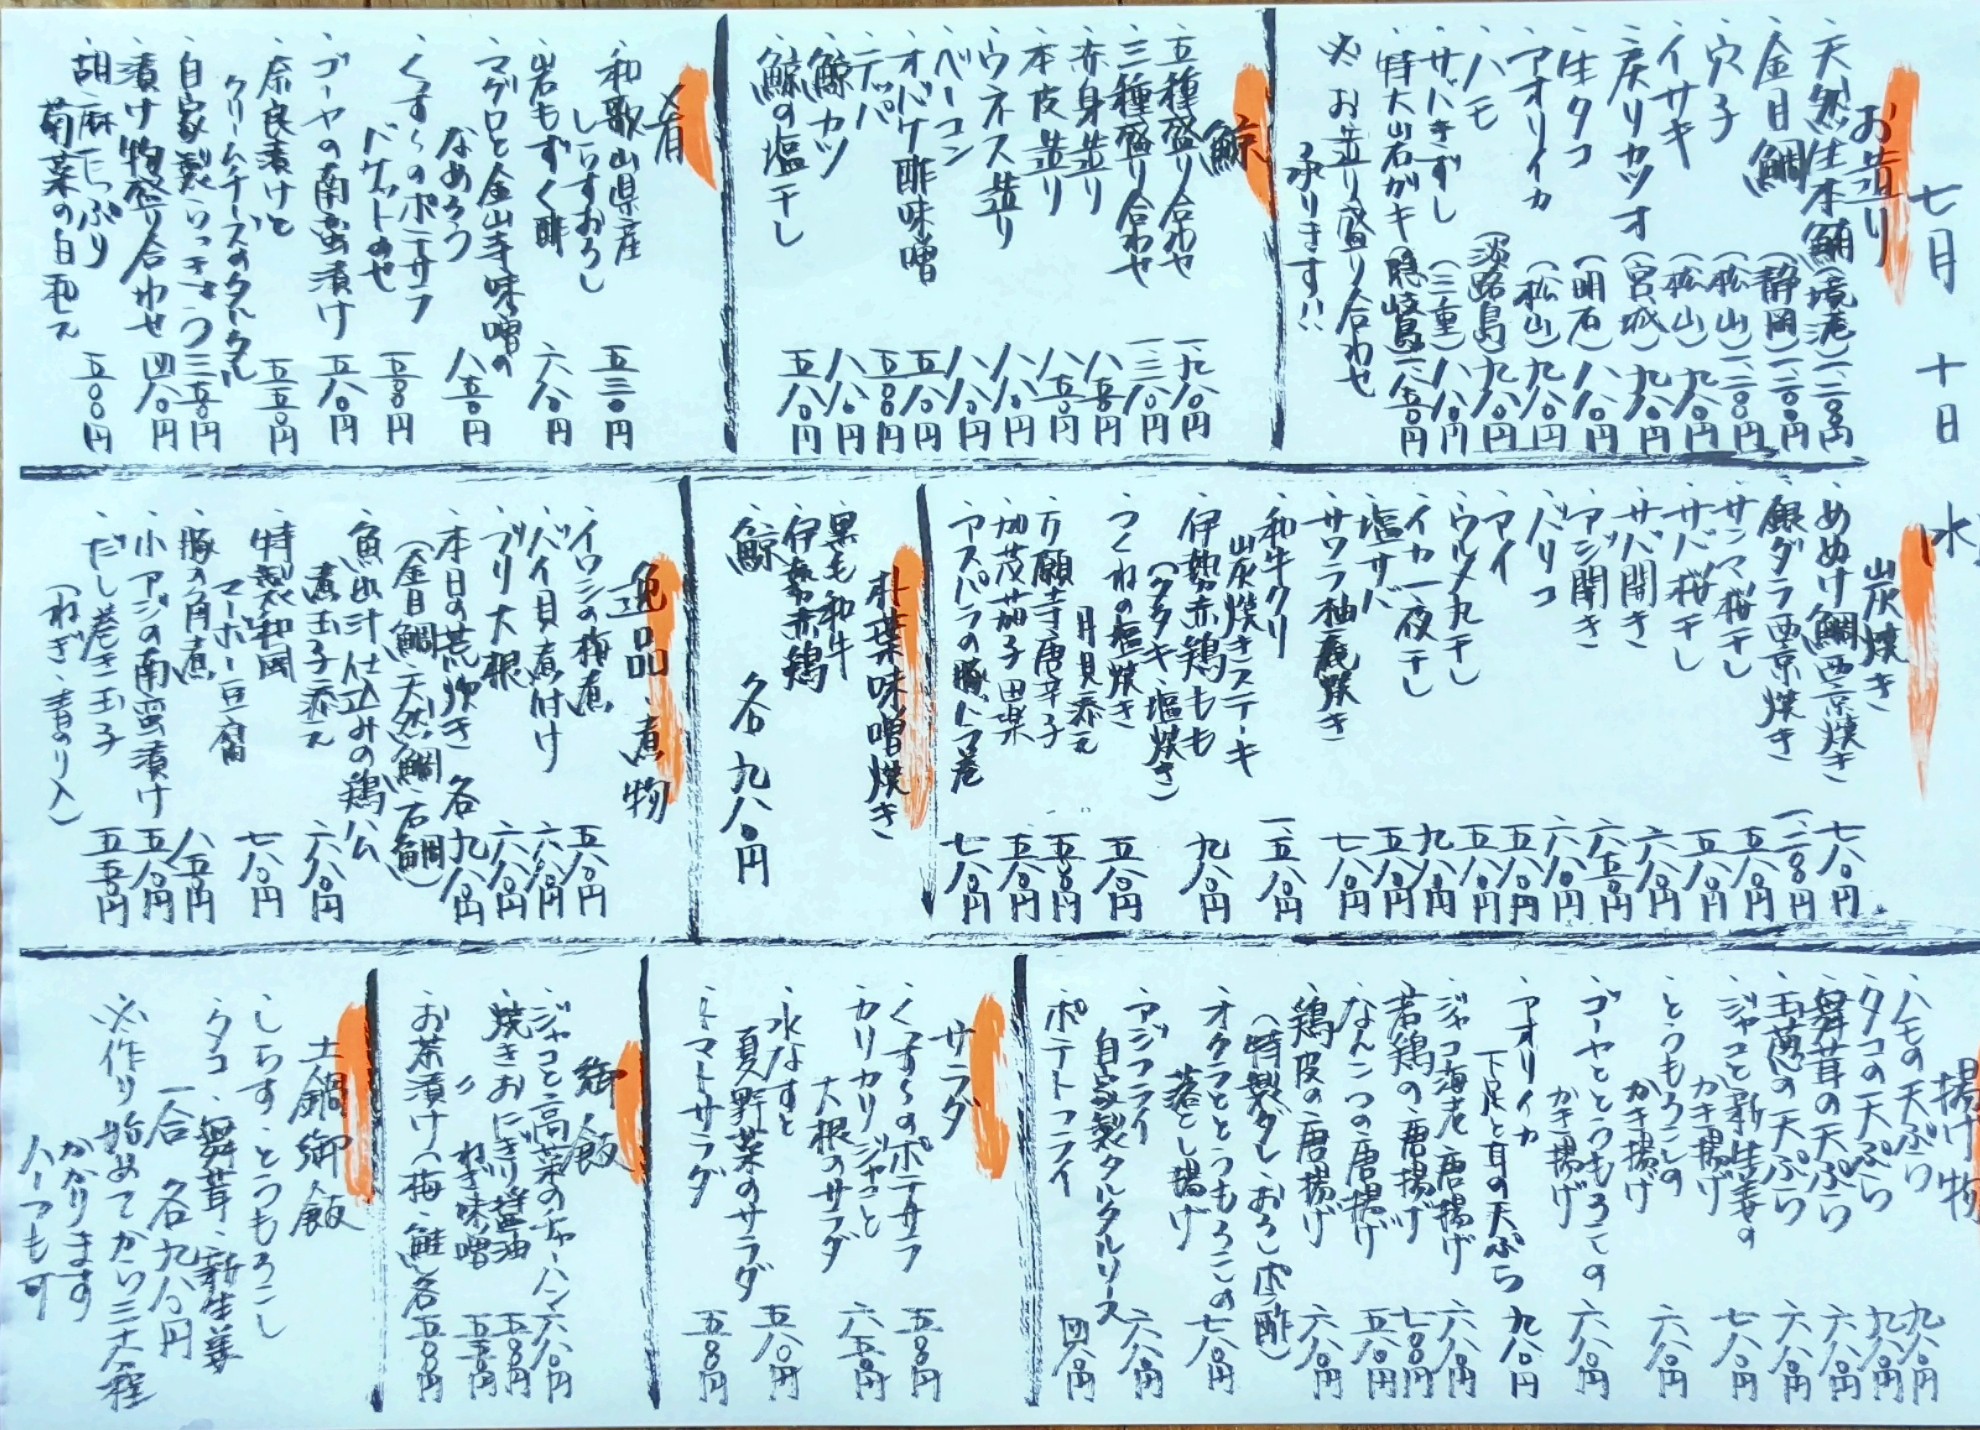 七月 十日 水
お造り
、天然生本鮪(境港)一、二〇〇円
、金目鯛(静岡)一、二〇〇円
、穴子(松山)一、二〇〇円
、イサキ(松山)九八〇円
、戻りカツオ(宮城)九八〇円
、生タコ(明石)八八〇円
、アオリイカ(松山)九八〇円
、ハモ(淡路島)九八〇円
、サバきずし(三重)八八〇円
、特大岩ガキ(隠岐島)
※お造り盛り合わせ
承ります!!
鯨
、五種盛り合わせ 一、九八〇円
、三種盛り合わせ 一、三八〇円
、赤身造り 八五〇円
、本皮造り 八五〇円
、ウネス造り 八八〇円
、ベーコン 八八〇円
、オバケ酢味噌 五八〇円
、テッパ 五〇〇円
、鯨カツ 八八〇円
、鯨の塩干し 五八〇円
肴
、和歌山県産
しらすおろし 五三〇円
、岩もずく酢 六八〇円
、マグロと金山寺味噌の
なめろう 八五〇円
、くずしのポテサラ
バゲットのせ 五〇〇円
、ゴーヤの南蛮漬け 五八〇円
、奈良漬けと
クリームチーズのタルタル 五五〇円
、自家製らっきょう 三五〇円
、漬け物盛り合わせ 四八〇円
、胡麻たっぷり
菊菜の白和え 五〇〇円
炭焼き
、めぬけ鯛西京焼き 七八〇円
、銀ダラ西京焼き 一、二〇〇円
、サンマ桜干し 五八〇円
、サバ桜干し 五八〇円
、サバ開き 六八〇円
、アジ開き 六五〇円
、バリコ 六八〇円
、アイ 五八〇円
、ウルメ丸干し 五八〇円
、イカ一夜干し 九八〇円
、塩サバ 五八〇円
、サワラ柚庵焼き 七八〇円
、和牛クリ
炭焼きステーキ 一、五八〇円
、伊勢赤鶏もも
(タタキ・塩焼き) 九八〇円
、つくねの塩焼き
月見添え 五八〇円
、万願寺唐辛子 五五〇円
、加茂茄子田楽 五八〇円
、アスパラの豚バラ巻 七八〇円
朴葉味噌焼き
、黒毛和牛
、伊勢赤鶏
、鯨
各 九八〇円
逸品・煮物
、イワシの梅煮 五八〇円
、バイ貝煮付け 六八〇円
、ブリ大根 六八〇円
、本日の荒炊き 各九八〇円
(金目鯛・天然鯛・石鯛)
、魚出汁仕込みの鶏公
煮玉子添え 六八〇円
、特製和風
マーボー豆腐 七八〇円
、豚の角煮 八五〇円
、小アジの南蛮漬け 五八〇円
、だし巻き玉子 五五〇円
(ねぎ・青のり入)
揚げ物
、ハモの天ぷら 九八〇円
、タコの天ぷら 九八〇円
、舞茸の天ぷら 六八〇円
、玉葱の天ぷら 六八〇円
、ジャコと新生姜の
かき揚げ 七八〇円
、とうもろこしの
かき揚げ 六八〇円
、ゴーヤととうもろこしの
かき揚げ 六八〇円
、アオリイカ
下足と耳の天ぷら 九八〇円
、ジャコ海老唐揚げ 六八〇円
、若鶏の唐揚げ 七〇〇円
、なんこつの唐揚げ 五八〇円
、鶏皮の唐揚げ 六八〇円
(特製タレ・おろしポン酢)
、オクラととうもろこしの
落とし揚げ 七八〇円
、アジフライ
自家製タルタルソース 六八〇円
、ポテトフライ 四八〇円
サラダ
、くずしのポテサラ 五〇〇円
、カリカリジャコと
大根のサラダ 六五〇円
、水なすと
夏野菜のサラダ 五八〇円
、トマトサラダ 五八〇円
御飯
、ジャコと高菜のチャーハン 六八〇円
、焼きおにぎり醤油 五〇〇円
〃 ねぎ味噌 五五〇円
、お茶漬け(梅・鮭)各五〇〇円
土鍋御飯
、しらす・とうもろこし
、タコ・舞茸・新生姜
一合 各九八〇円
※作り始めてから三十分程
かかります
ハーフも可